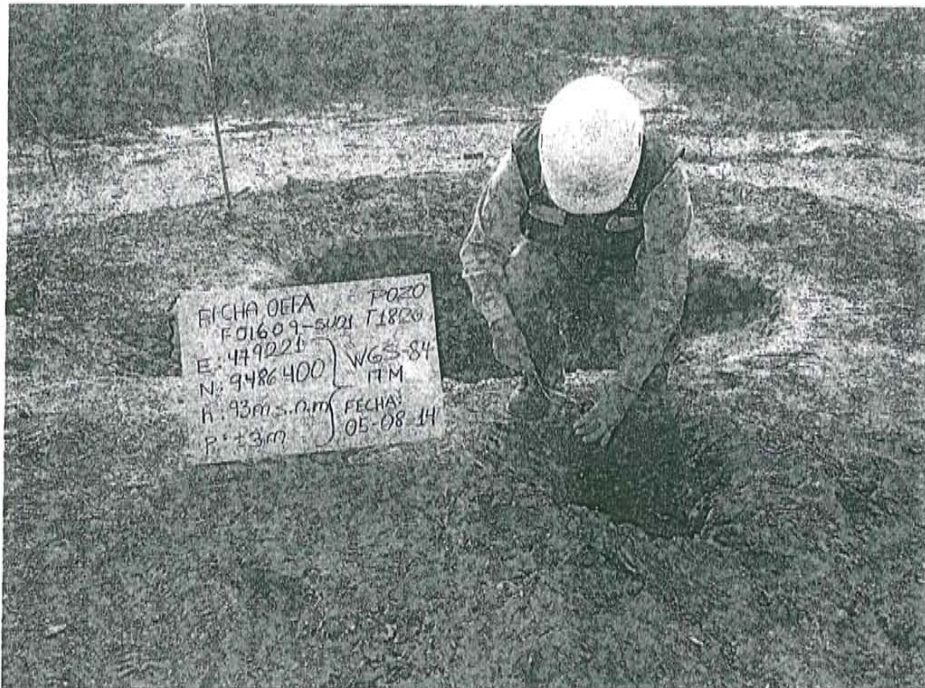 FICHA OEFA POZO
F01609-SU01 T1820
E: 479221
N: 9486400 } WGS-84
17 M
A: 93m s.n.m
P: ±3m } FECHA:
05-08-14